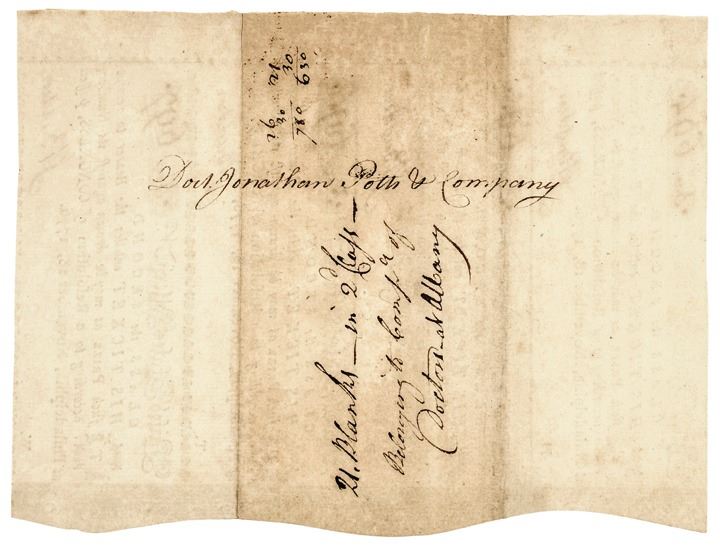 Doct. Jonathan Potts & Company
21. Blanks — in 2d Class —
Belonging to Compa of
Doctors at Albany
26 21
30 30
780 630